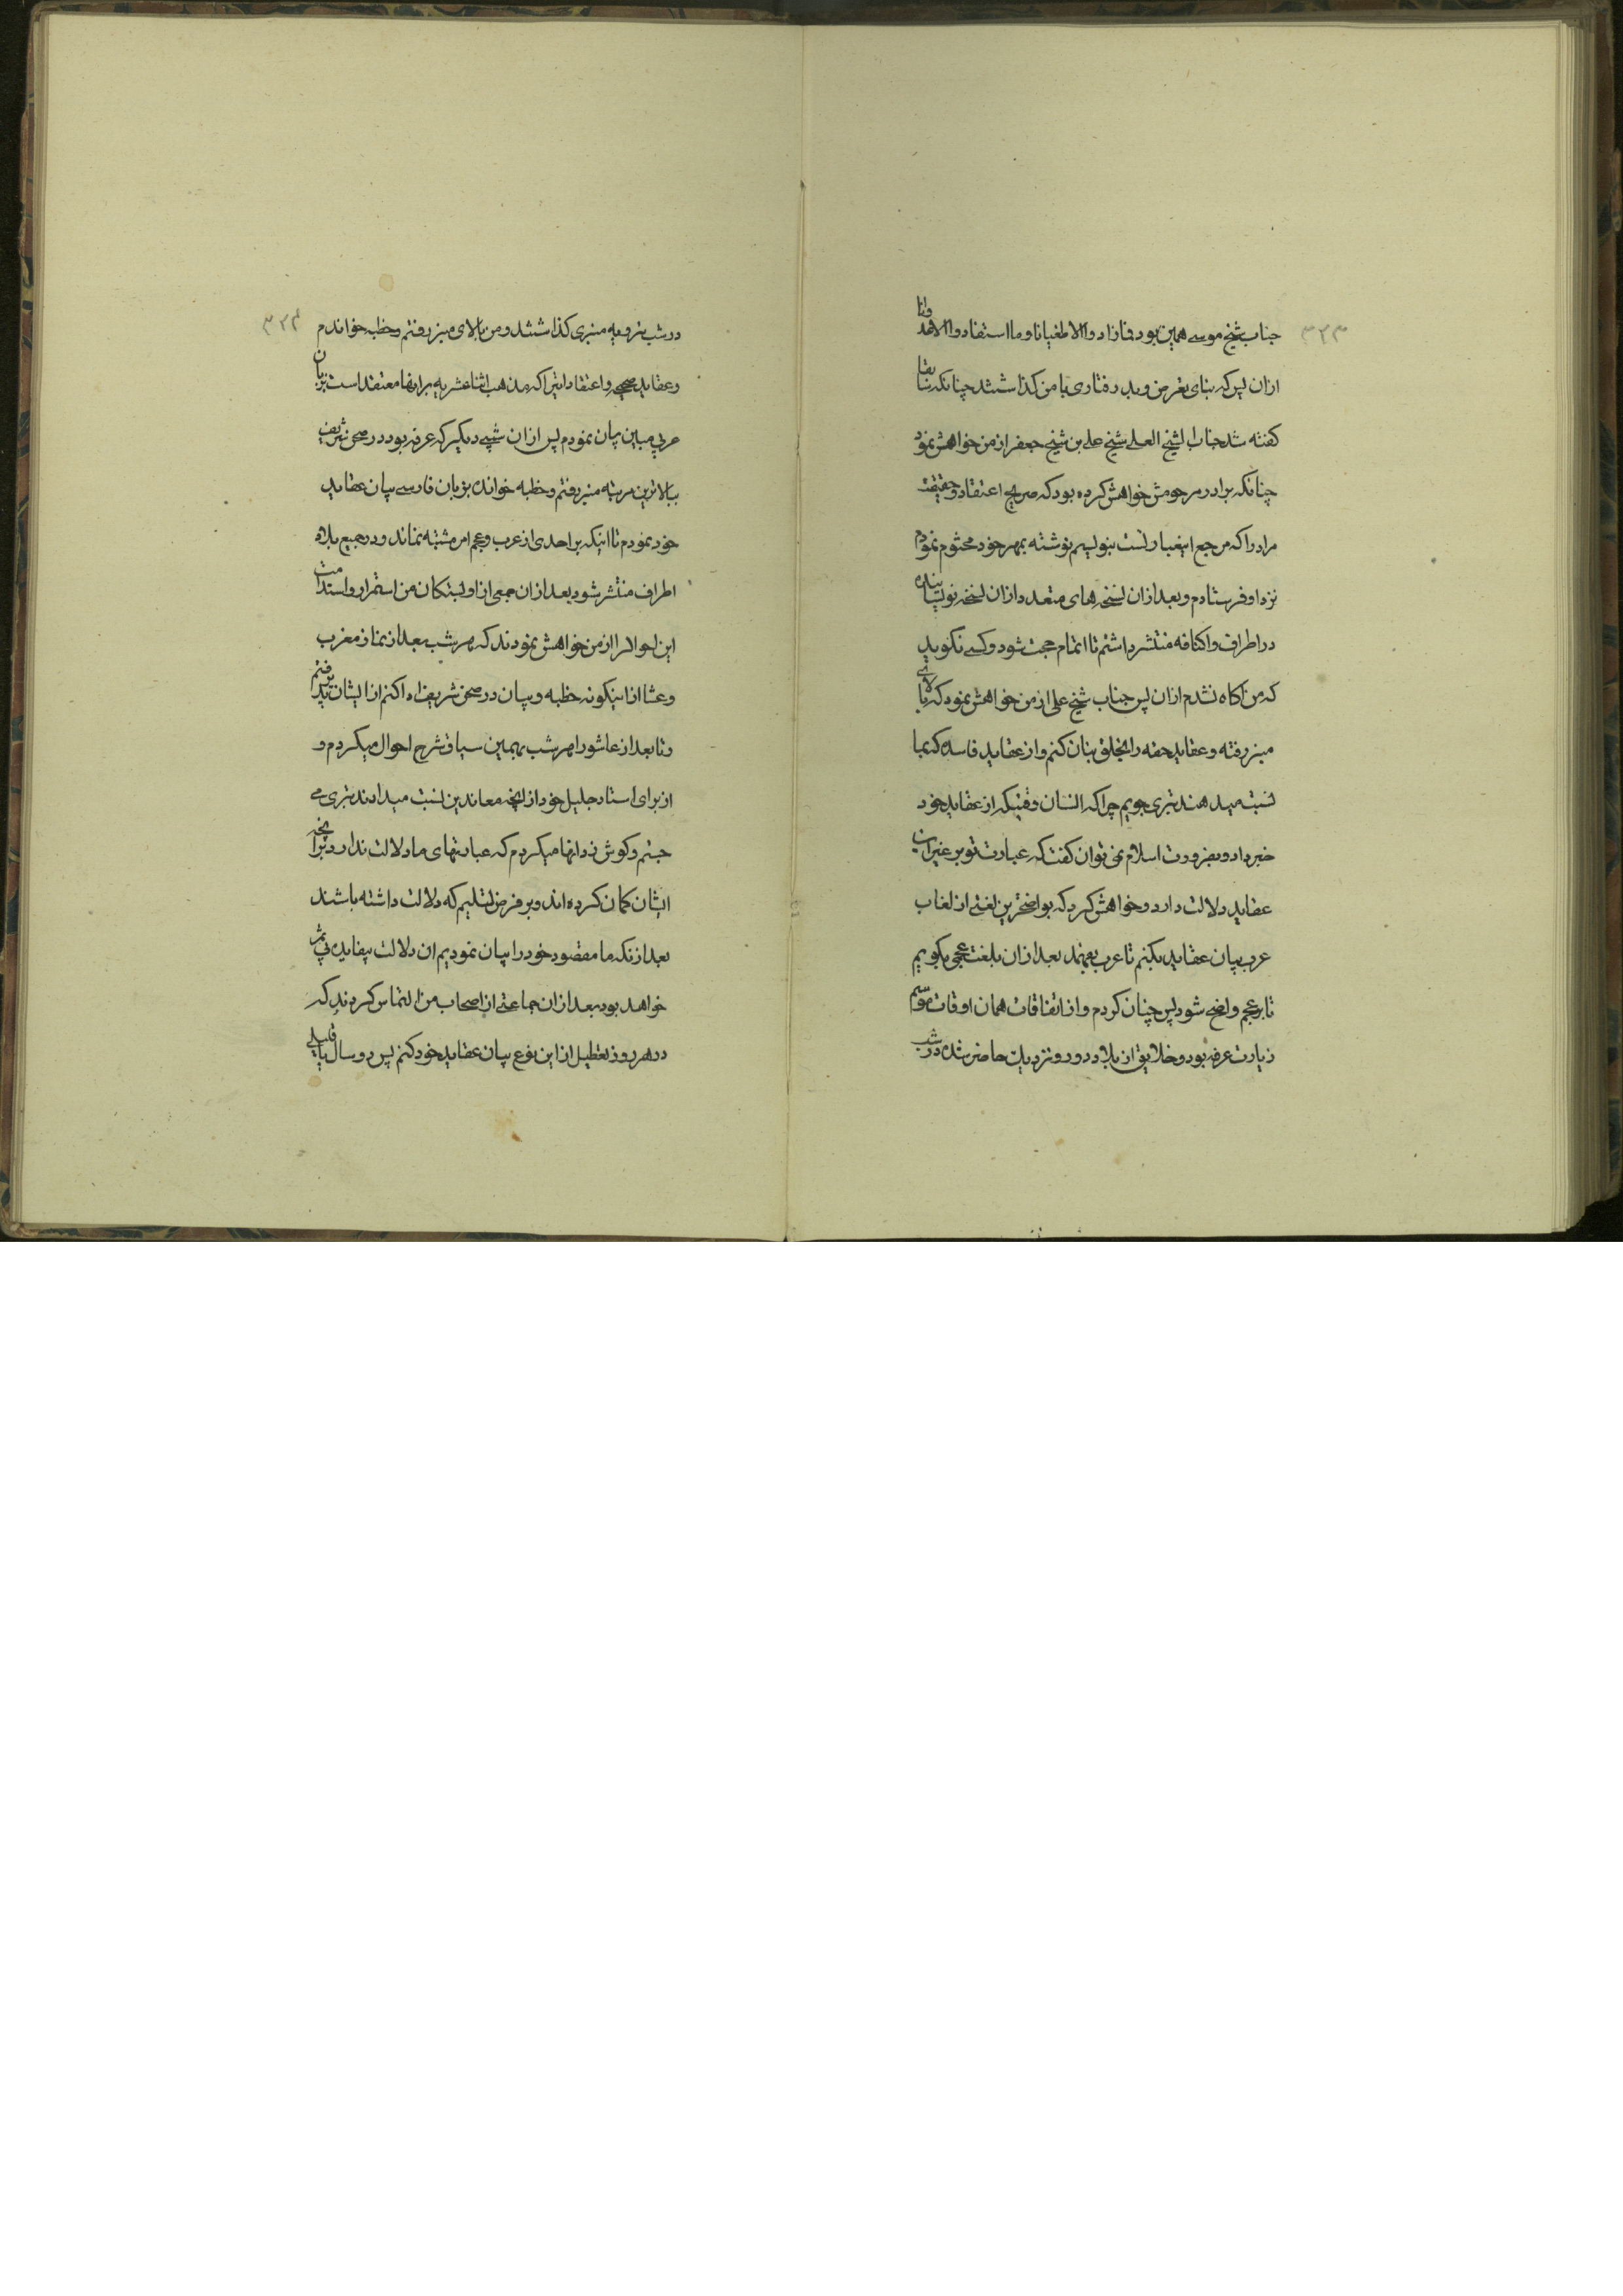 ۳۲۳
جناب شیخ موسی همین بود فما زادوا الا طغیانا وما استفادوا الا هذ
ازان پس که بنای تعرض و بد رفتاری با من کذاشتند چنانکه سابقا
کفته شد جناب الشیخ العلی شیخ علی بن شیخ جعفر از من خواهش نمود
چنانکه برادر مرحومش خواهش کرده بود که صریح اعتقاد وحقیقت
مراد را که مرجع این عبارتست بنویسم نوشته بمهر خود مختوم نمودم
نزد او فرستادم و بعد ازان نسخه های متعدد ازان نسخه نویسانیده
در اطراف واکنافه منتشر داشتم تا اتمام حجت شود و کسی نکوید
که من اکاه نشدم ازان پس جناب شیخ علی از من خواهش نمود که ببالای
منبر رفته و عقاید حقه را بخلق بیان کنم و از عقاید فاسده که بما
نسبت میدهند تبری جویم چرا که انسان وقتیکه از عقاید خود
خبر داد و بضرورت اسلام نمی توان کفت که عبارت تو بر غیر این
عقاید دلالت دارد و خواهش کرد که بواضحترین لغتی از لغات
عرب بیان عقاید بکنم تا عرب بفهمند بعد ازان بلغت عجمی بکویم
تا بر عجم واضح شود پس چنان کردم و از اتفاقات همان اوقات موسم
زیارت عرفه بود و خلایق از بلاد دور و نزدیک حاضر شده در شب
۳۲۴
در شب ترویه منبری کذاشتند و من ببالای منبر رفتم و خطبه خواندم
و عقاید صحیحه و اعتقاداتیرا که مذهب اثناعشریه برانها معتقد است بزبان
عربی مبین بیان نمودم پس ازان شبی دیکر که عرفه بود در صحن شریف
ببالاترین مرتبه منبر رفتم و خطبه خوانده بزبان فارسی بیان عقاید
خود نمودم تا اینکه بر احدی از عرب و عجم امر مشتبه نماند و در جمیع بلاد
اطراف منتشر شود بعد ازان جمعی از وابستکان من استمرار و استدامت
این احوال را از من خواهش نمودند که هر شب بعد از نماز مغرب
و عشا از اینکونه خطبه و بیان در صحن شریف ادا کنم از ایشان پذیرفتم
و تا بعد از عاشورا هر شب بهمین سیاق شرح احوال میکردم و
از برای استاد جلیل خود از انچه معاندین نسبت میدادند تبری می
جستم و کوش زد انها میکردم که عبارتهای ما دلالت ندارد بر انچه
ایشان کمان کرده اند و بر فرض تسلیم که دلالت داشته باشند
بعد ازنکه ما مقصود خود را بیان نمودیم ان دلالت بیفایده و بی ثمر
خواهد بود بعد ازان جماعتی از اصحاب من التماس کردند که
در هر روز تعطیل از این نوع بیان عقاید خود کنم پس دو سال یا قلیلی